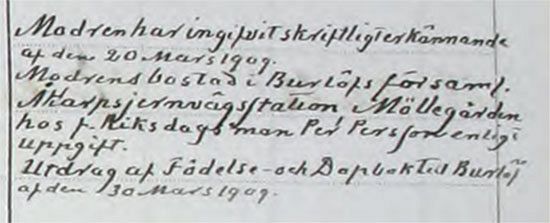 Modren har ingifvit skriftligt erkännande
af den 20 Mars 1909.
Modrens bostad i Burlöfs församl.
Åkarps jernvägsstation Möllegården
hos f. Riksdagsman Per Persson enligt
uppgift.
Utdrag af Födelse- och Dopbok ted Burlöf
af den 30 Mars 1909.